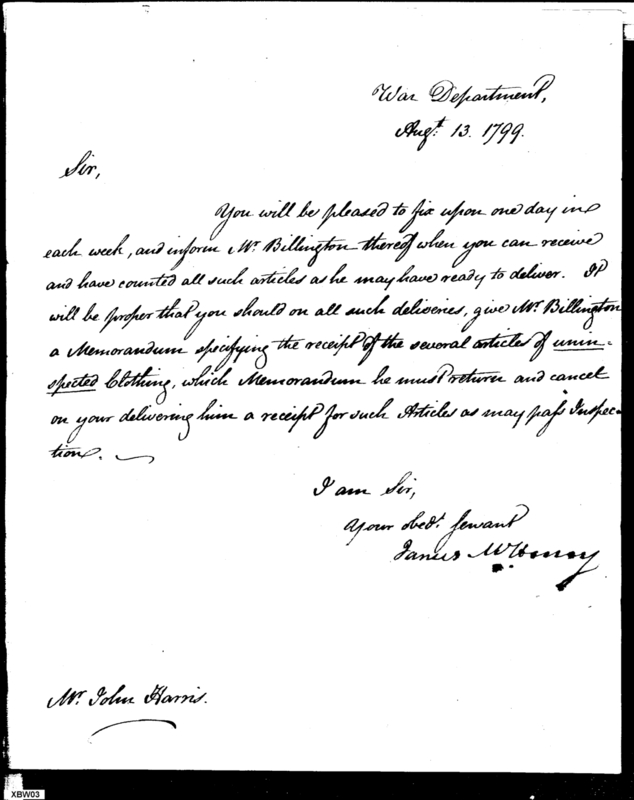 War Department,
Augt. 13. 1799.
Sir,
You will be pleased to fix upon one day in
each week, and inform Mr. Billington thereof when you can receive
and have counted all such articles as he may have ready to deliver. It
will be proper that you should on all such deliveries, give Mr. Billington
a Memorandum specifying the receipt of the several articles of unin-
spected Clothing, which Memorandum he must return and cancel
on your delivering him a receipt for such Articles as may paſs Inspec-
tion.
I am Sir,
Your obedt. Servant
James McHenry
Mr. John Harris.
XBW03